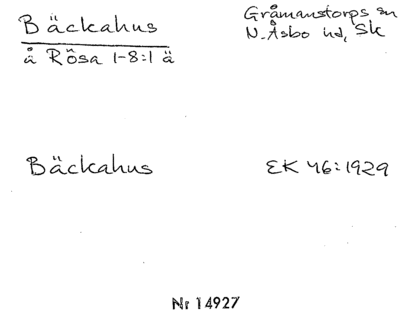 Bäckahus
å Rösa 1-8:1 ä
Gråmanstorps sn
N. Åsbo hd, Sk
Bäckahus
EK 46:1929
Nr 14927